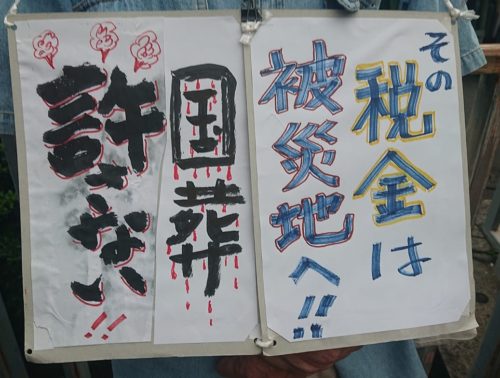 その
税金は
被災地へ!!
国葬
許さない!!